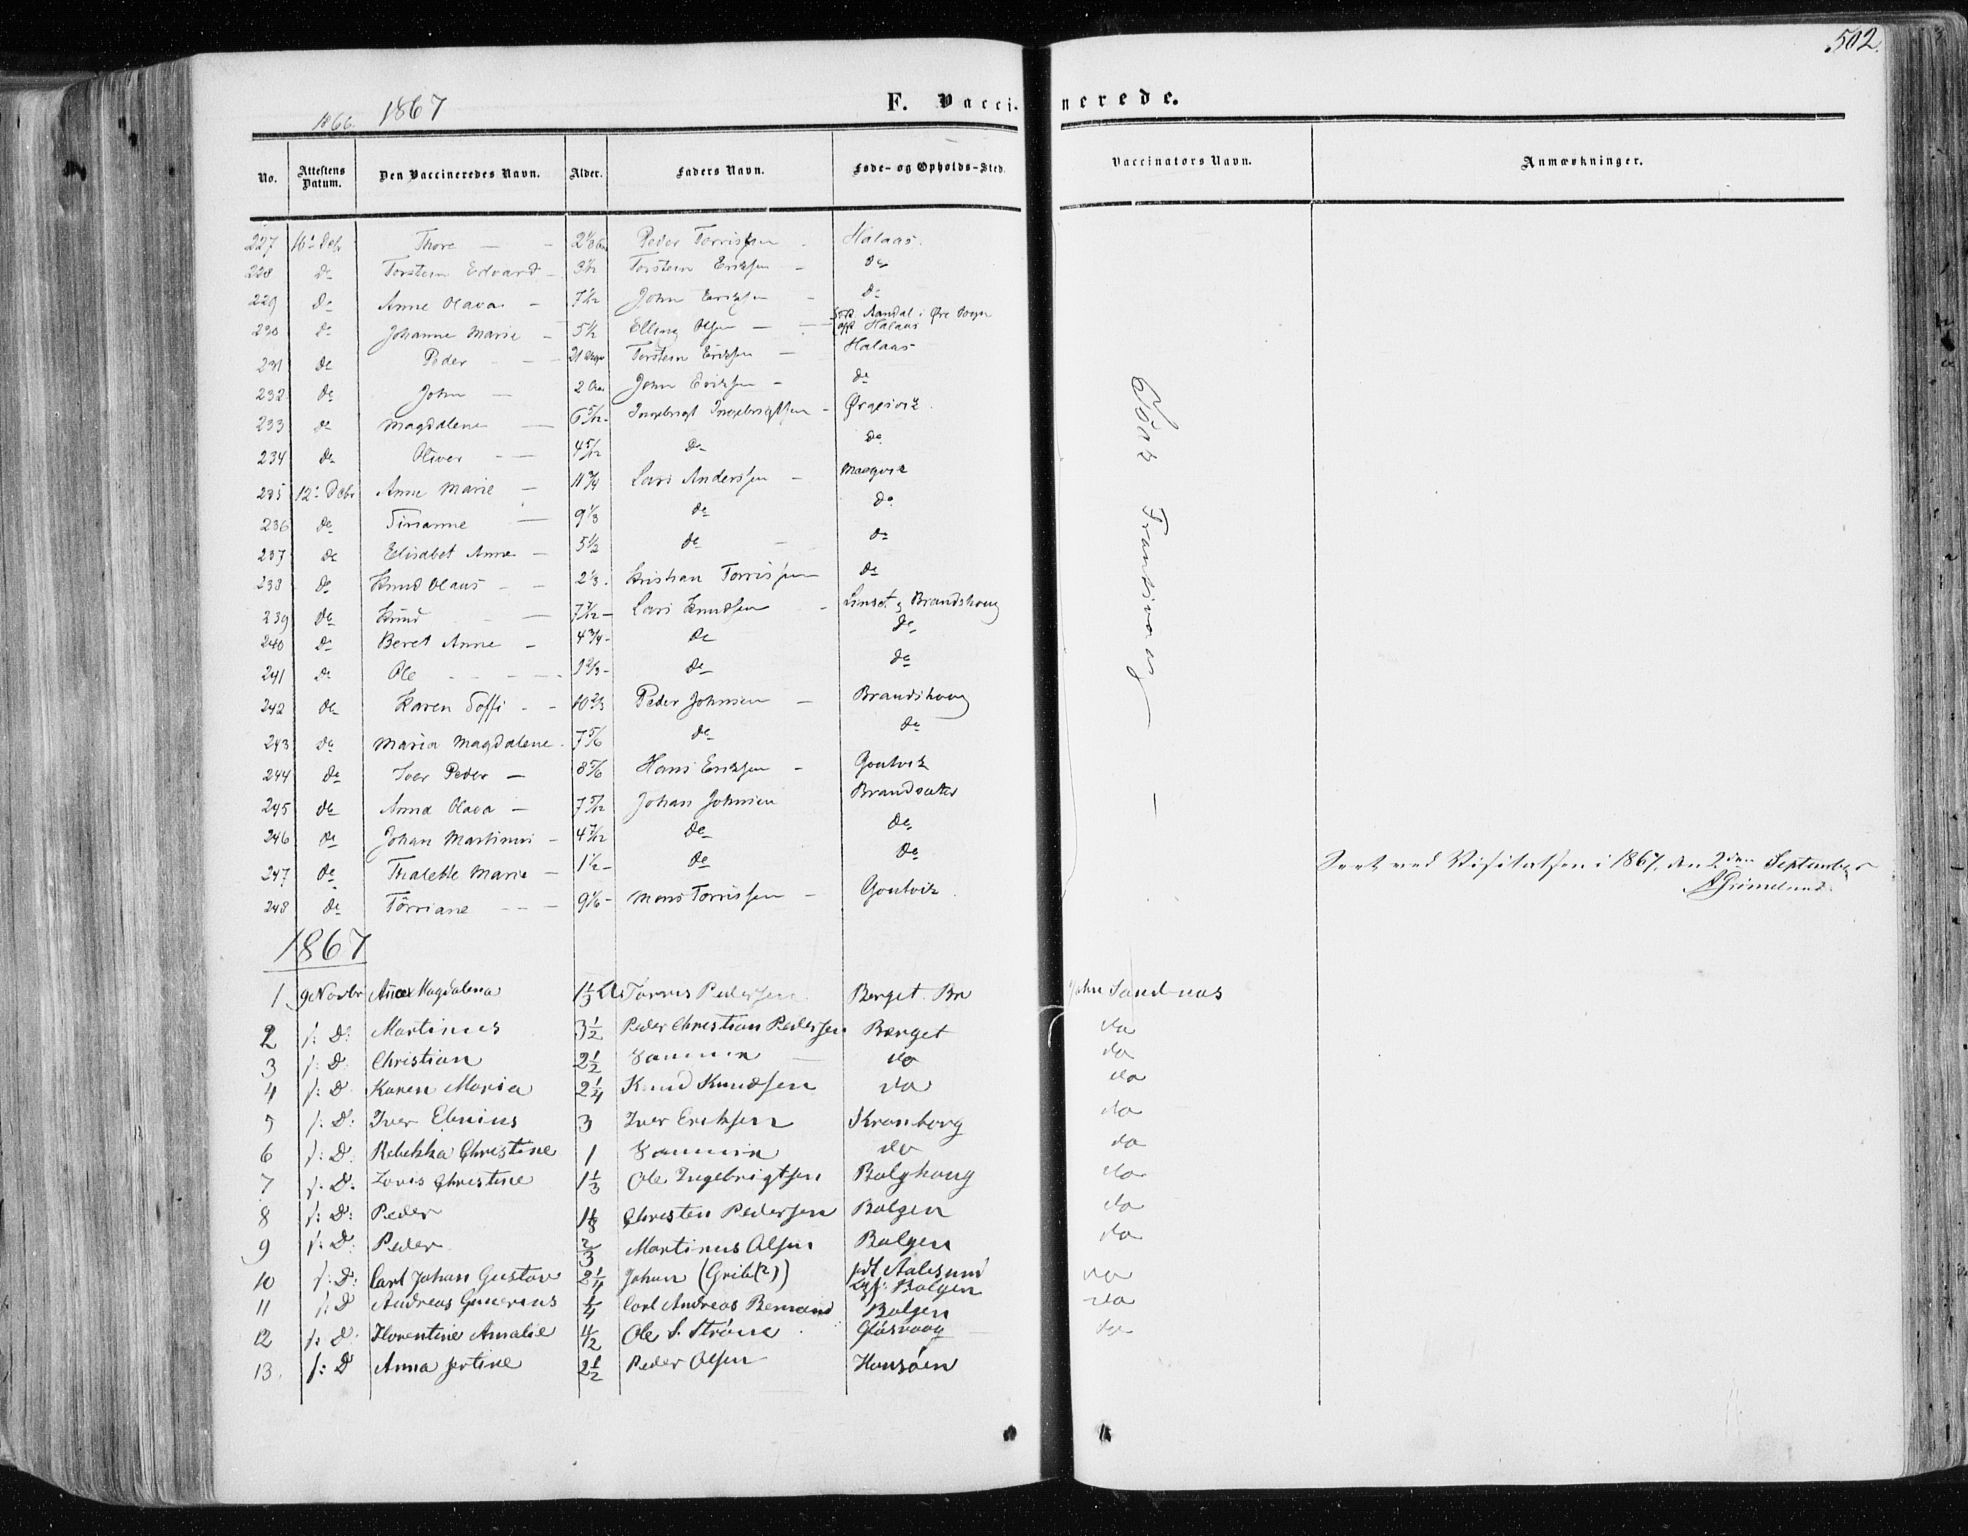 502.
1866. 1867
F. Vaccinerede.
No. Attestens Datum. Den Vaccineredes Navn. Alder. Faders Navn. Føde- og Opholds-Sted. Vaccinators Navn. Anmærkninger.
227 Thore Peder Torrissen Halaas.
228 do Torstein Edvard 3½ Torstein Eriksen do
229 do Anne Olava John Eriksen do
230 do Johanne Marie 5½ Elling Olsen Aandal i Øre Sogn Halaas
231 do Peder 21 Torstein Eriksen Halaas
232 do John 2 Aar John Eriksen do
233 do Magdalene 6 5/12 Ingebrigt Ingebrigtsen Ørgesvik.
234 do Oliver 4 5/12 do do
235 12te Debr Anne Marie 11 ¾ Lars Anderssen
236 do Sirianne 9⅓ do do
237 do Elisabet Anne 5½ do do
238 do Knud Olaus 2⅓. Kristian Torrissen do
239 do Knud Lars Knudsen Brandshoug
240 do Beret Anne 4¾ do do
241 do Ole do do
242 do Karen Soffi 10⅔ Peder Johnsen Brandshoug
243 do Maria Magdalene 7⅚ do do
244 do Iver Peder 8⅚ Hans Eriksen Goutvik
245 do Anna Olava Johan Johnsen Brandsæter
246 do Johan Martinus do do
247 do Thalette Marie 1½ do do
248 do Törriane 9⅙ Mons Torrissen Goutvik
Frantsivaag
Seet ved Visitatsen i 1867, den 2den September
AGrimelund.
1867
1. 9 Novbr Anne Magdalena 1⅓ Torres Pedersen Berget. Br John Sandnæs
2 s: D: Martinus 3½ Peder Christian Pedersen Berget do
3 s: D. Christian 2½ Samme do do
4 s: D. Karen Maria 2¼ Knud Knudsen do do
5 s: D: Iver Elenius 3 Iver Eriksen Kronborg do
6 s: D. Rebekka Christine 1 Samme do do
7 s: D. Lovis Christine 1⅓ Ole Ingebrigtsen Bolghoug do
8 s: D: Peder 1⅛ Christen Pedersen Bolgen do
9 s: D. Peder ⅔ Martinus Olsen Bolgen do
10 s: D: Carl Johan Gustav 2¼ Johan (Grib(?)) født Aalesund Bolgen do
11 s: D Andreas Gunerius ¼ Carl Andreas Bolgen do
12 s: D. Florentine Amalie Ole S. Strøme Glåsvaag do
13. s: D Anna 2½ Peder Olsen Honsöen